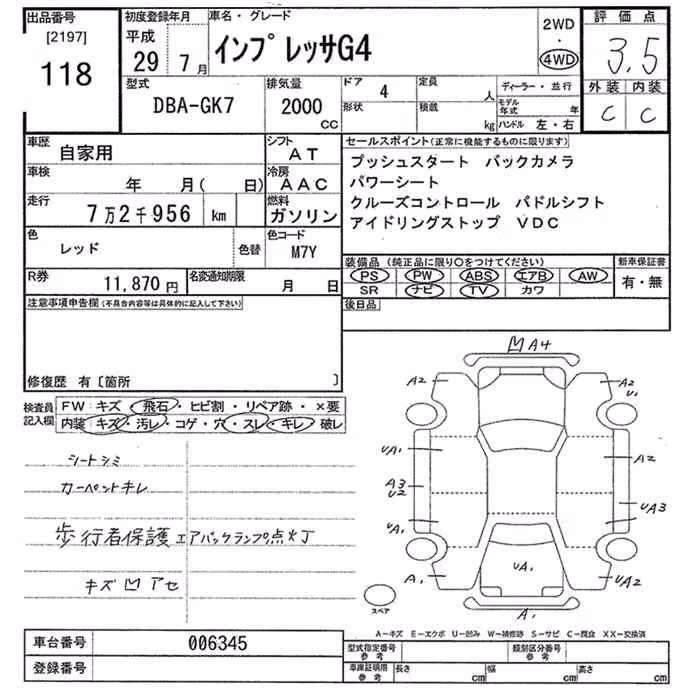 出品番号 初度登録年月 車名・グレード 2WD 評価点
[2197] 平成 ・
118 29 7月 インプレッサG4 4WD 3.5
外装 内装
型式 排気量 ドア 4 定員 人 ディーラー・並行 C C
DBA-GK7 2000 CC 形状 積載 kg モデル年式 年
ハンドル 左・右
車歴 自家用 シフト AT セールスポイント(正常に機能するものに限ります)
車検 年 月( 日) 冷房 AAC プッシュスタート バックカメラ
パワーシート
走行 7万2千956 km 燃料 ガソリン クルーズコントロール パドルシフト
アイドリングストップ VDC
色 レッド 色替 色コード M7Y
装備品(純正品に限り○をつけてください) 新車保証書
PS PW ABS エアB AW 有・無
SR ナビ TV カワ
R券 11,870円 名変通知期限 月 日
後日品
注意事項申告欄(不具合内容等は具体的に記入して下さい)
修復歴 有〔箇所 〕
検査員記入欄 FW:キズ・飛石・ヒビ割・リペア跡・×要
内装:キズ・汚レ・コゲ・穴・スレ・キレ・破レ
シートシミ
カーペットキレ
歩行者保護エアバックランプ点灯
キズ凹アセ
凹A4
A2 A2
U1
UA1 A2
A3
U2 UA3
UA1
A1 UA1 UA2
A1
スペア
A−キズ E−エクボ U−凹み W−補修跡 S−サビ C−腐食 XX−交換済
車台番号 006345 型式指定番号 参考 類別区分番号 参考
登録番号 車庫証明用 参考 長さ cm 幅 cm 高さ cm